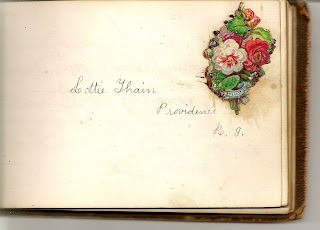 Lottie Thain
Providence
R. I.